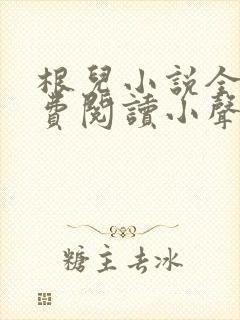 根兒小説全
費閱讀小聲
糖主去冰